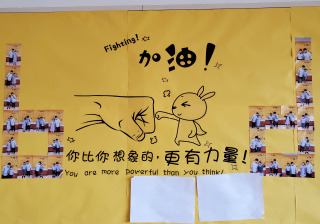 Fighting!
加油！
你比你想象的，更有力量！
You are more powerful than you think!